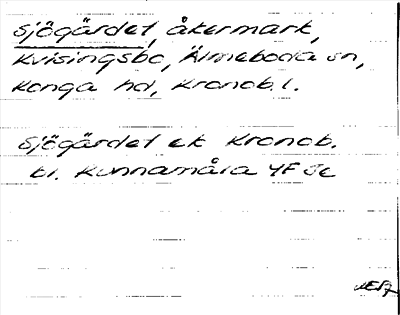 Sjögärdet, åkermark,
Kvisingsbo, Älmeboda sn,
Konga hd, Kronob. l.
Sjögärdet ek Kronob.
bl. Kunnamåla 4F 3c